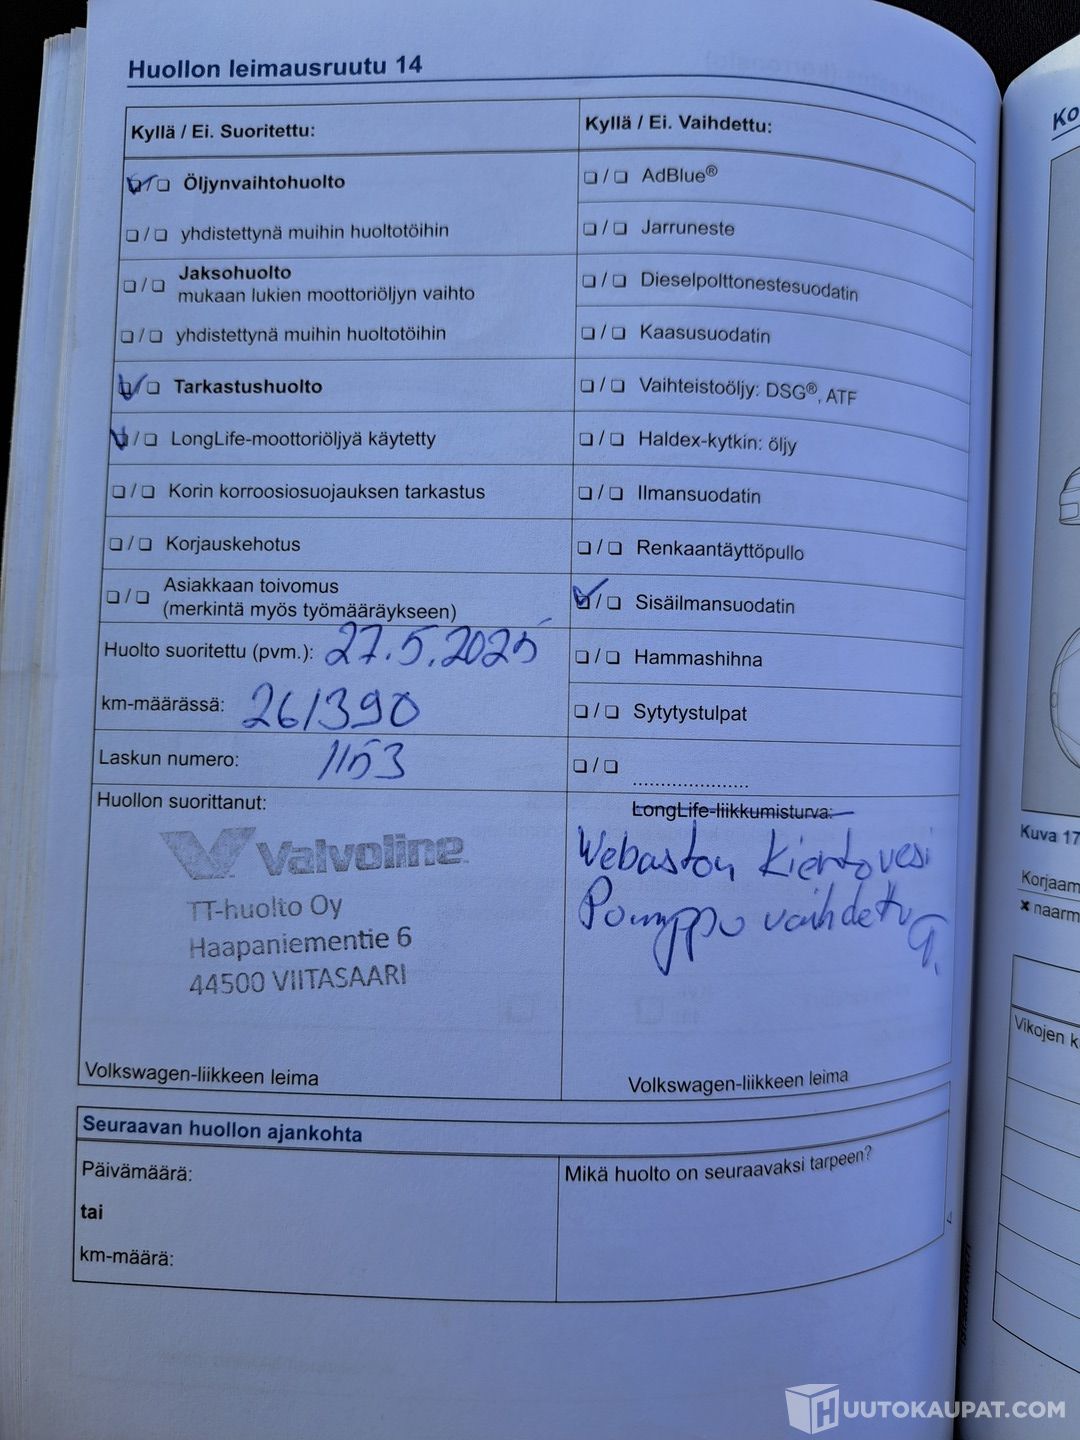 Huollon leimausruutu 14
Kyllä / Ei. Suoritettu:
☑/☐ Öljynvaihtohuolto
☐/☐ yhdistettynä muihin huoltotöihin
☐/☐ Jaksohuolto
mukaan lukien moottoriöljyn vaihto
☐/☐ yhdistettynä muihin huoltotöihin
☑/☐ Tarkastushuolto
☑/☐ LongLife-moottoriöljyä käytetty
☐/☐ Korin korroosiosuojauksen tarkastus
☐/☐ Korjauskehotus
☐/☐ Asiakkaan toivomus
(merkintä myös työmääräykseen)
Huolto suoritettu (pvm.): 27.5.2025
km-määrässä: 261390
Laskun numero: 1153
Huollon suorittanut:
Valvoline
TT-huolto Oy
Haapaniementie 6
44500 VIITASAARI
Volkswagen-liikkeen leima
Kyllä / Ei. Vaihdettu:
☐/☐ AdBlue®
☐/☐ Jarruneste
☐/☐ Dieselpolttonestesuodatin
☐/☐ Kaasusuodatin
☐/☐ Vaihteistoöljy: DSG®, ATF
☐/☐ Haldex-kytkin: öljy
☐/☐ Ilmansuodatin
☐/☐ Renkaantäyttöpullo
☑/☐ Sisäilmansuodatin
☐/☐ Hammashihna
☐/☐ Sytytystulpat
☐/☐ .....................
LongLife-liikkumisturva:
Webaston Kiertovesi
Pumppu vaihdettu
Volkswagen-liikkeen leima
Seuraavan huollon ajankohta
Päivämäärä:
tai
km-määrä:
Mikä huolto on seuraavaksi tarpeen?
Ko
Kuva 17
Korjaam
× naarm
Vikojen k
HUUTOKAUPAT.COM